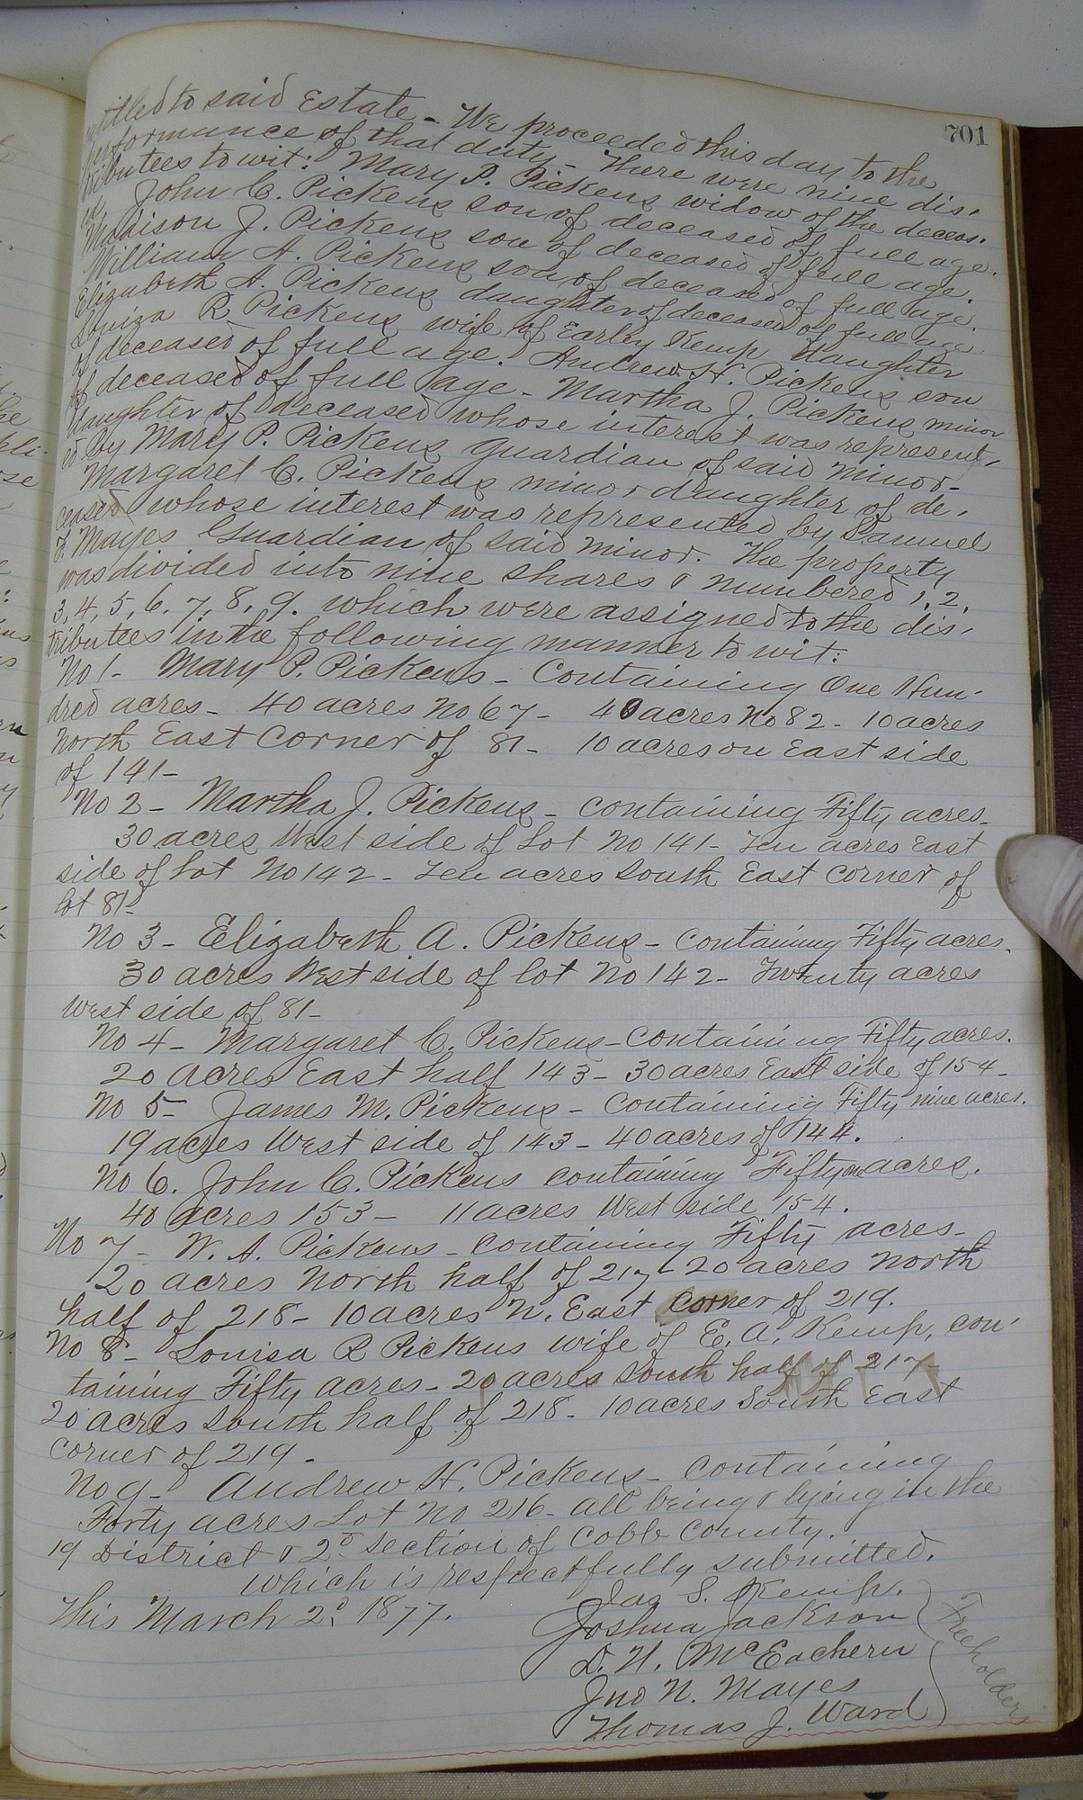 701
entitled to said Estate - We proceeded this day to the
performance of that duty - There were nine dis-
tributees to wit: Mary P. Pickens widow of the deceas-
ed John C. Pickens son of deceased of full age.
Madison J. Pickens son of deceased of full age.
William A. Pickens son of deceased of full age.
Elizabeth A. Pickens daughter of deceased of full age.
Louiza R Pickens wife of Earley Kemp daughter
of deceased of full age. Andrew H. Pickens son
of deceased of full age - Martha J. Pickens minor
daughter of deceased whose interest was represent-
ed by Mary P. Pickens guardian of said minor -
Margaret C. Pickens minor daughter of de-
ceased whose interest was represented by Samuel
Mayes Guardian of said minor. The property
was divided into nine shares & numbered 1, 2,
3, 4, 5, 6, 7, 8, 9. which were assigned to the dis-
tributees in the following manner to wit:
No 1 - Mary P. Pickens - Containing One Hun-
dred acres - 40 acres No 67 - 40 acres No 82 - 10 acres
North East Corner of 81 - 10 acres on East side
of 141 -
No 2 - Martha J. Pickens - containing Fifty acres -
30 acres West side of Lot No 141 - Ten acres East
side of Lot No 142 - Ten acres South East corner of
lot 81 -
No 3 - Elizabeth A. Pickens - containing Fifty acres.
30 acres West side of lot No 142 - Twenty acres
West side of 81 -
No 4 - Margaret C. Pickens - containing Fifty acres.
20 acres East half 143 - 30 acres East side of 154 -
No 5 - James M. Pickens - containing Fifty nine acres.
19 acres West side of 143 - 40 acres of 144.
No 6. John C. Pickens containing Fifty one acres.
40 acres 153 - 11 acres West side 154.
No 7 - W. A. Pickens - containing Fifty acres -
20 acres North half of 217 - 20 acres North
half of 218 - 10 acres N. East corner of 219.
No 8 - Louisa R Pickens wife of E. A. Kemp, con-
taining Fifty acres - 20 acres South half of 217 -
20 acres South half of 218 - 10 acres South East
corner of 219 -
No 9 - Andrew H. Pickens - containing
Forty acres Lot No 216 - all being & lying in the
19 District & 2d Section of Cobb County.
which is respectfully submitted.
This March 2d 1877.
Jas S. Kemp.
Joshua Jackson
D. N. McEachern
Jno N. Mayes
Thomas J. Ward
Freeholders